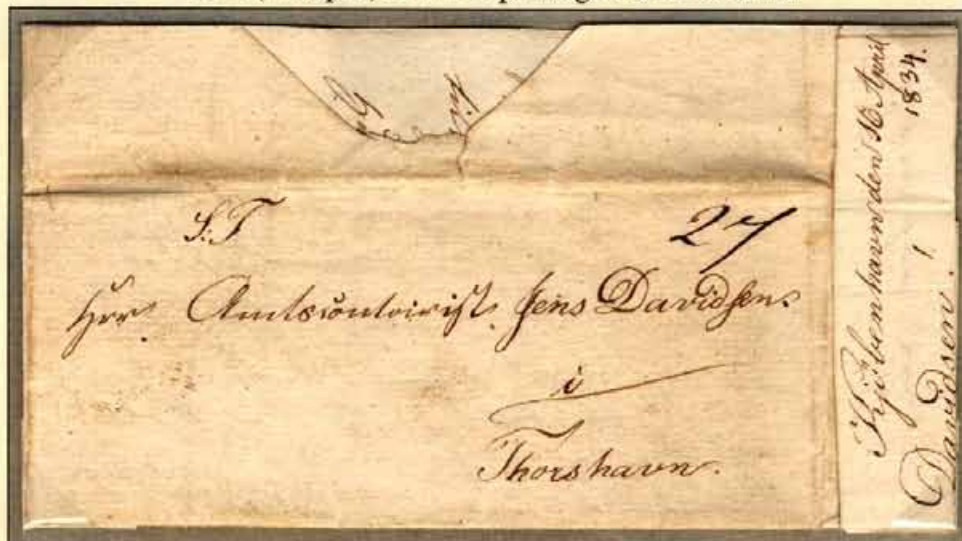 S:T
27
Herr Amtscontoirist Jens Davidsen.
i
Thorshavn.
Kjöbenhavn den 16 April
1834.
Davidsen.